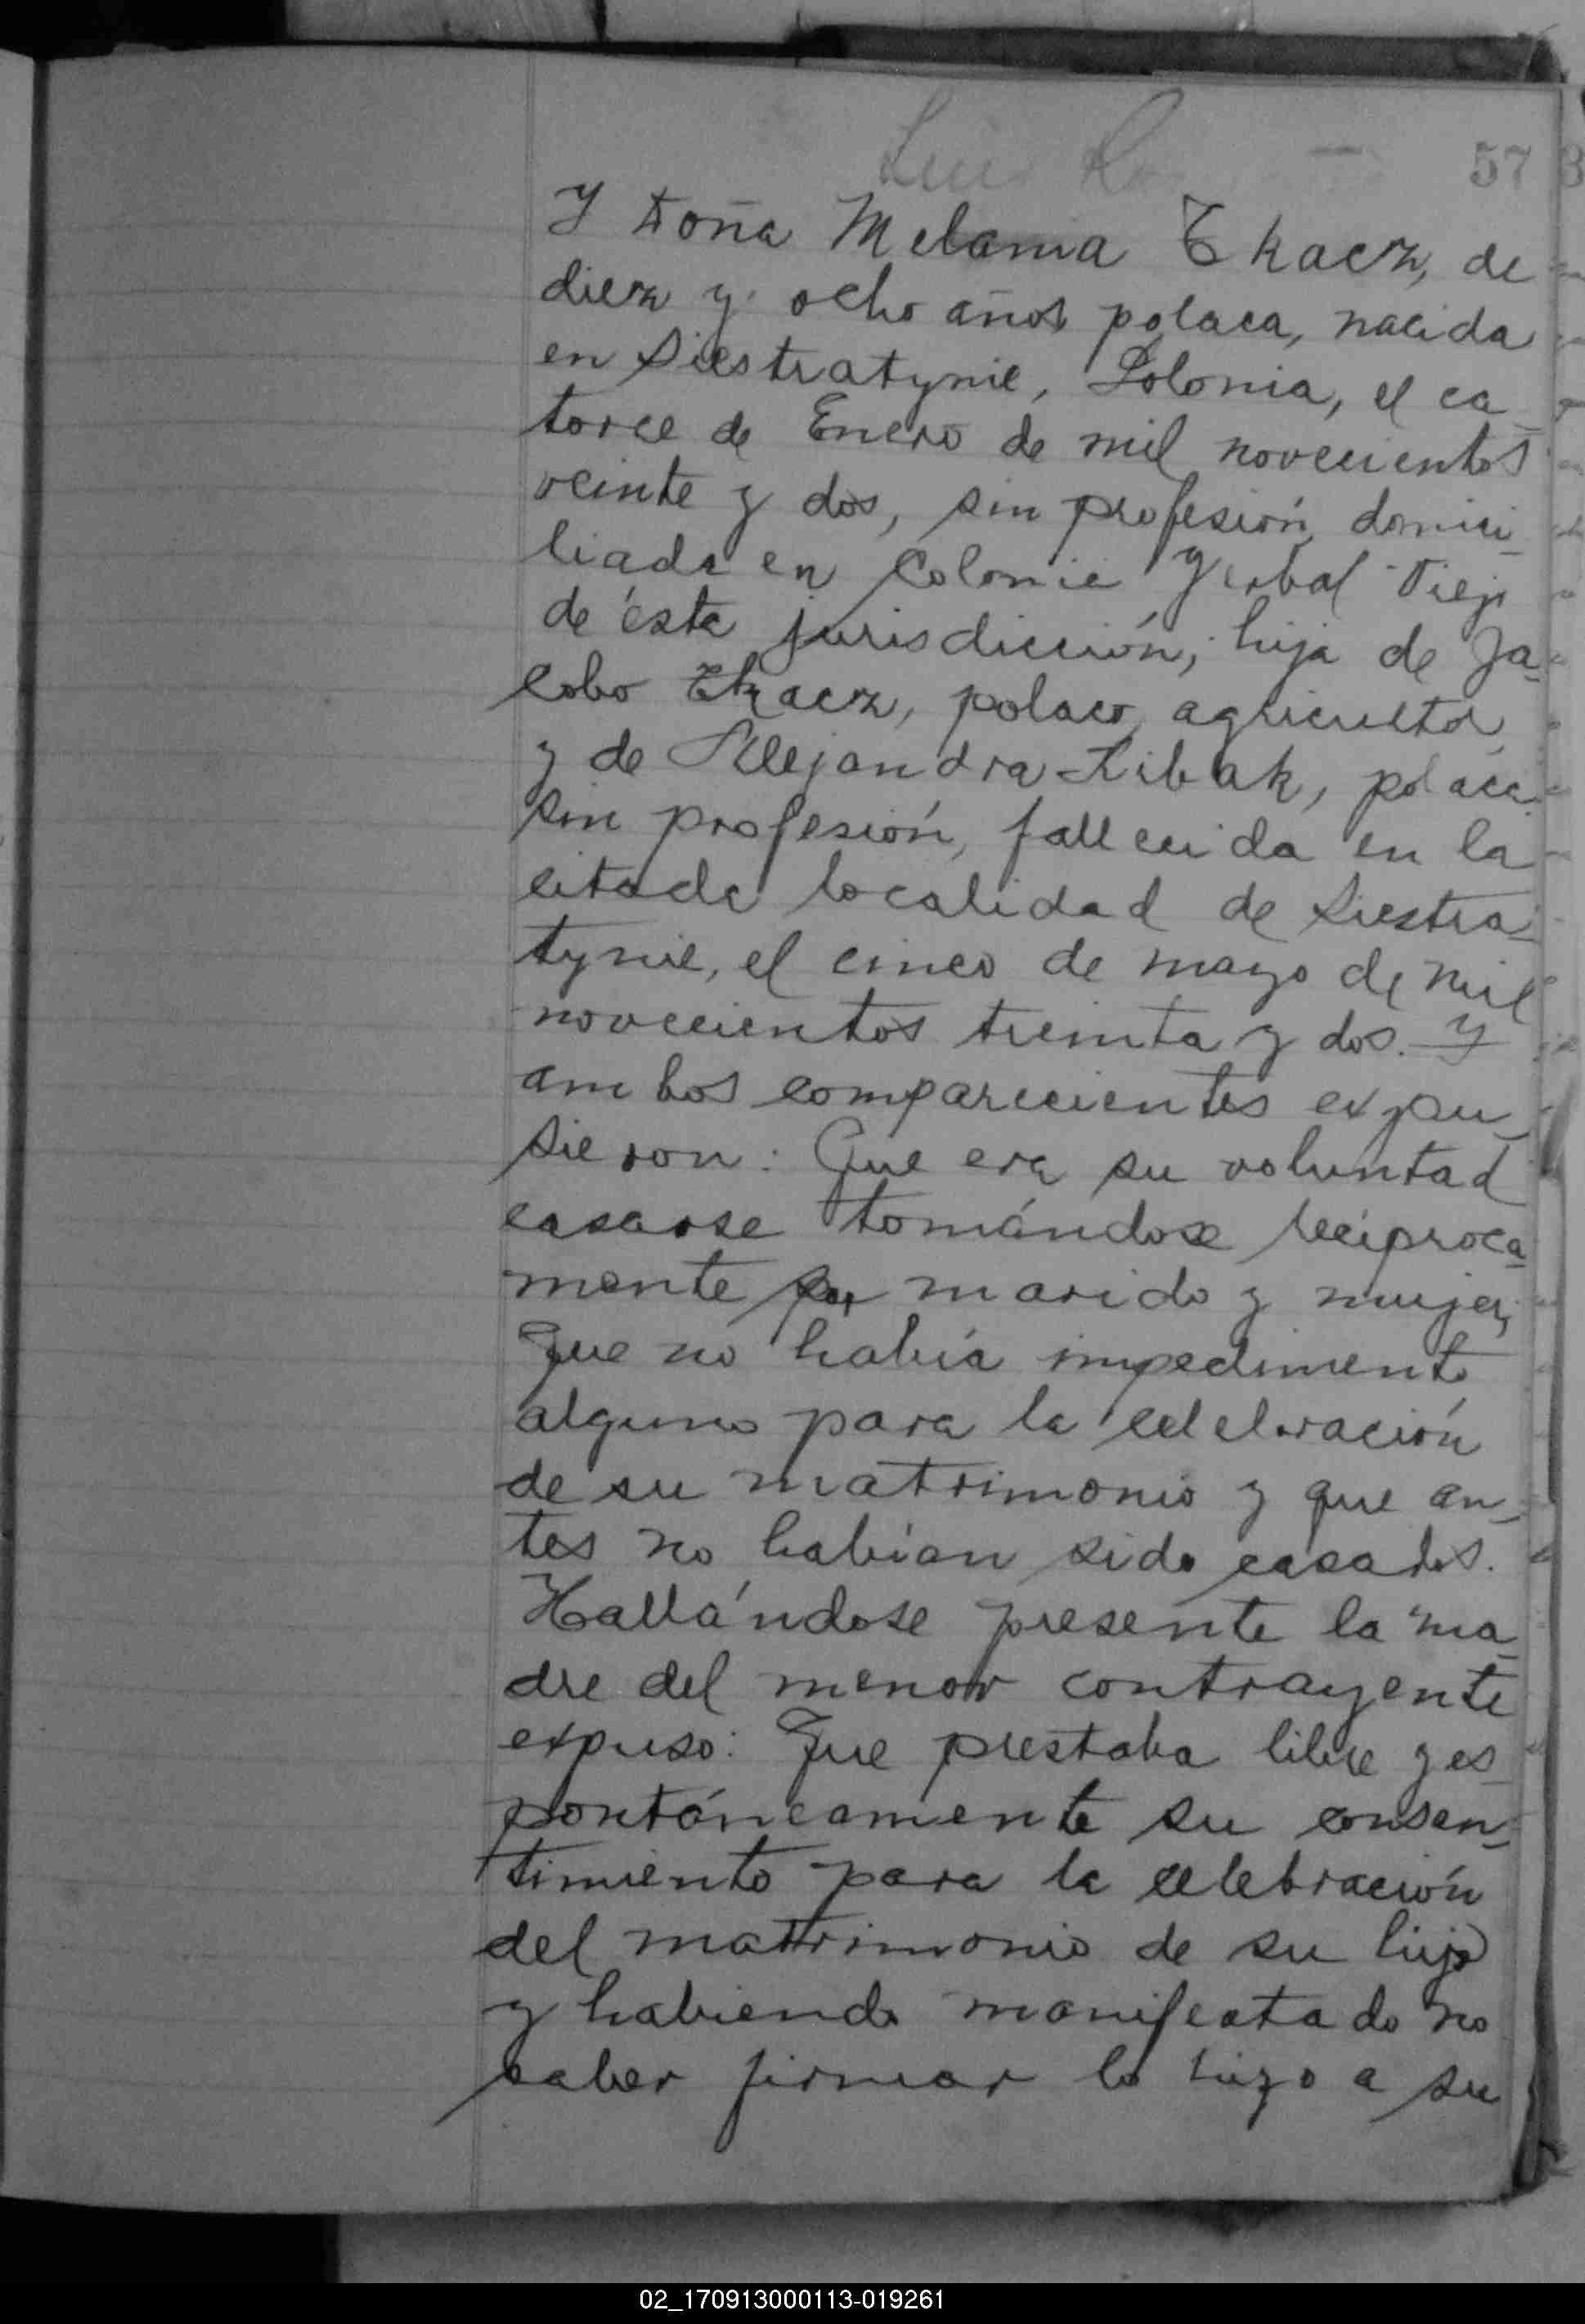 57
Y Doña Melania Tkacz, de
diez y ocho años polaca, nacida
en Siestratynie, Polonia, el ca_
torce de Enero de mil novecientos
veinte y dos, sin profesión, domici_
liada en Colonia Yerbal Viejo
de ésta jurisdicción; hija de Ja_
cobo Tkacz, polaco, agricultor,
y de Alejandra Ribak, polaca
sin profesión, fallecida en la
citada localidad de Siestra_
tynie, el cinco de mayo de mil
novecientos treinta y dos. Y
ambos comparecientes expu_
sieron: Que era su voluntad
casarse tomándose recíproca_
mente por marido y mujer,
que no había impedimento
alguno para la celebración
de su matrimonio y que an_
tes no habían sido casados.
Hallándose presente la ma_
dre del menor contrayente
expuso: Que prestaba libre y es_
pontáneamente su consen_
timiento para la celebración
del matrimonio de su hijo
y habiendo manifestado no
saber firmar lo hizo a su
02_170913000113-019261